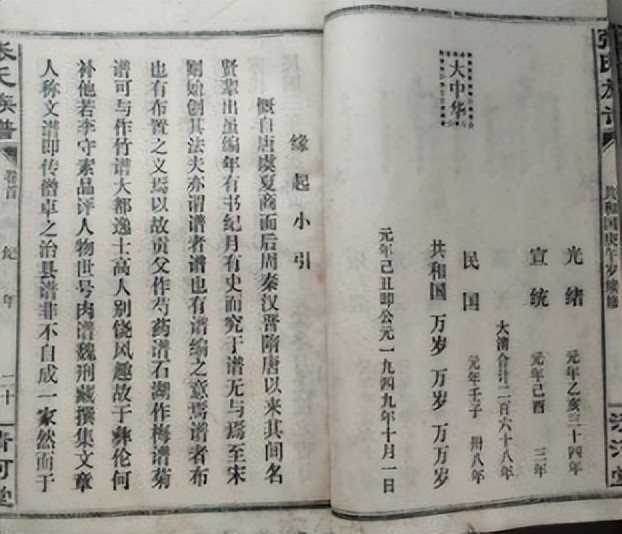 张氏族谱
共和国庚午岁续修
光绪 元年乙亥三十四年
宣统 元年己酉 三年
大清合计二百六十八年
民国 元年壬子 卅八年
大中华
共和国 万岁 万岁 万万岁
元年己丑即公元一九四九年十月一日
缘起小引
慨自唐虞夏商而后周秦汉晋隋唐以来其间名
贤辈出虽编年有书纪月有史而究于谱无与焉至宋
则始创其法夫亦谓谱者谱也有谱编之意焉谱者布
也有布置之义焉以故贡父作芍药谱石湖作梅谱菊
谱可与作竹谱大都逸士高人别饶风趣故于彝伦何
补他若李守素品评人物世号肉谱魏刑臧撰集文章
人称文谱即传僧卓之治县谱非不自成一家然而于
张氏族谱 卷首 纪年 二十 清河堂